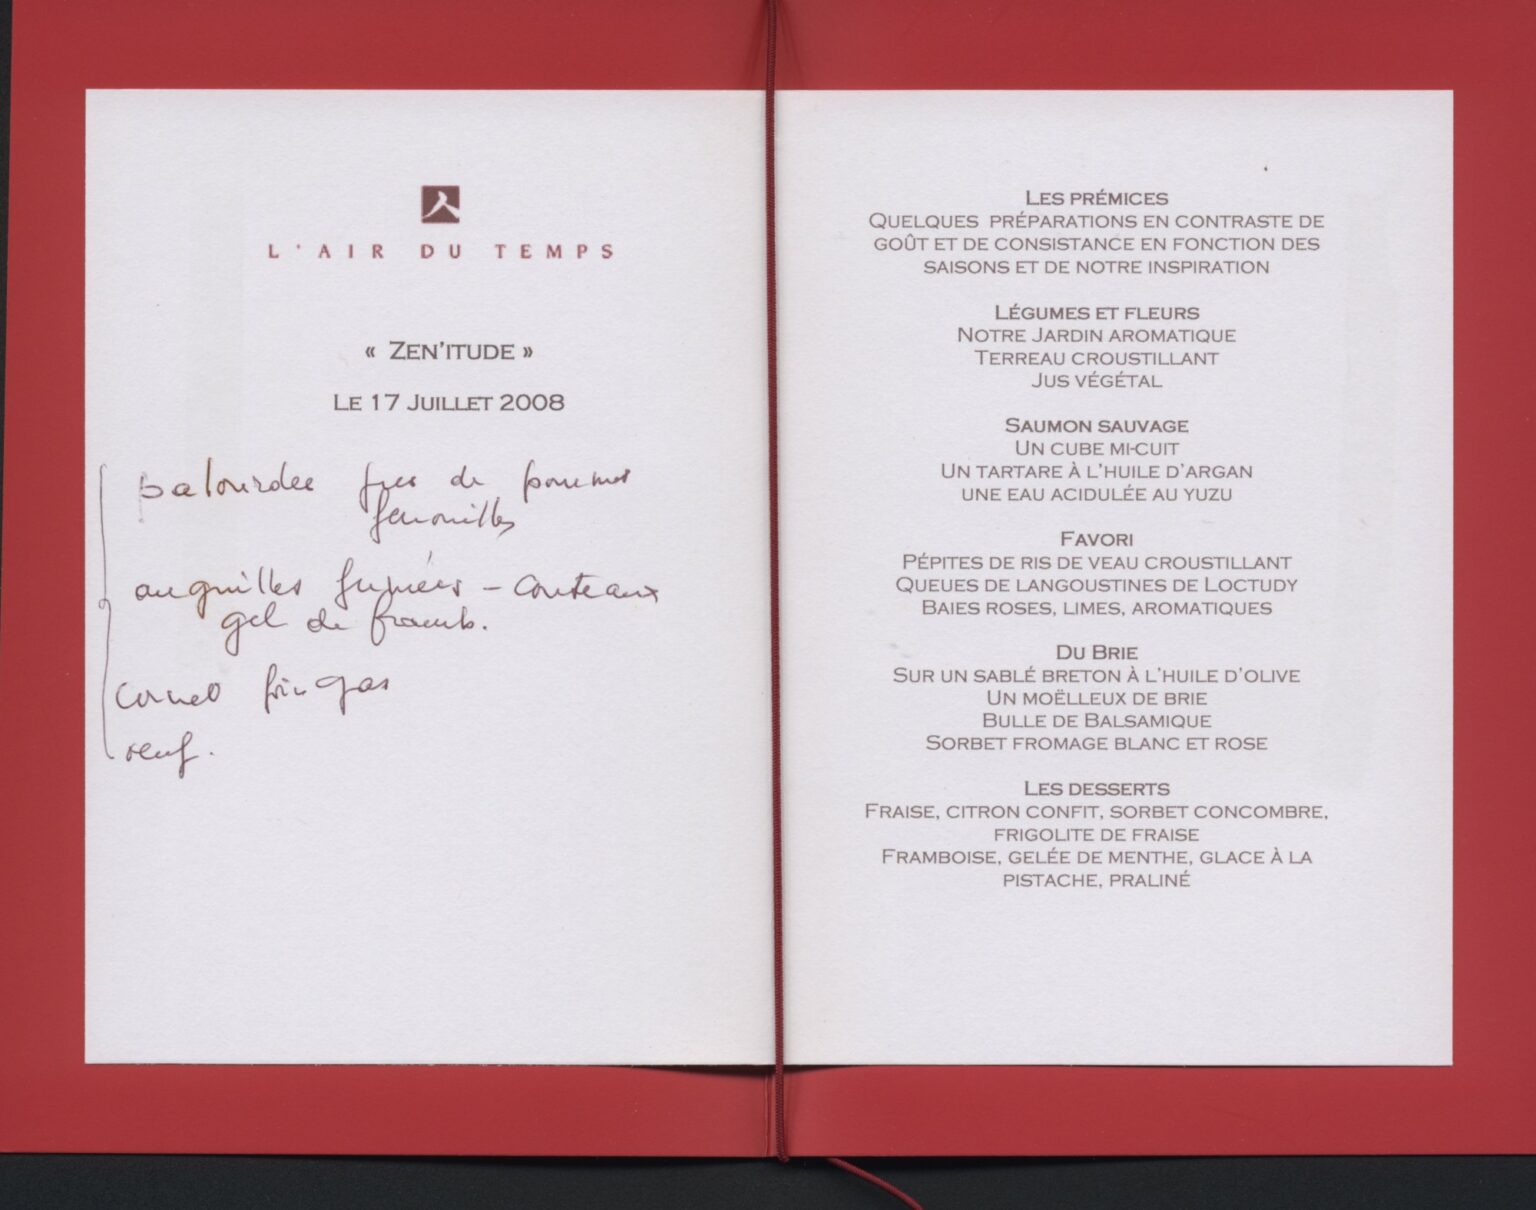 人
L'AIR DU TEMPS
« ZEN'ITUDE »
LE 17 JUILLET 2008
palourdes jus de pommes
fenouilles
anguilles fumées - couteaux
gel de framb.
cornet foie gras
oeuf.
LES PRÉMICES
QUELQUES PRÉPARATIONS EN CONTRASTE DE
GOÛT ET DE CONSISTANCE EN FONCTION DES
SAISONS ET DE NOTRE INSPIRATION
LÉGUMES ET FLEURS
NOTRE JARDIN AROMATIQUE
TERREAU CROUSTILLANT
JUS VÉGÉTAL
SAUMON SAUVAGE
UN CUBE MI-CUIT
UN TARTARE À L'HUILE D'ARGAN
UNE EAU ACIDULÉE AU YUZU
FAVORI
PÉPITES DE RIS DE VEAU CROUSTILLANT
QUEUES DE LANGOUSTINES DE LOCTUDY
BAIES ROSES, LIMES, AROMATIQUES
DU BRIE
SUR UN SABLÉ BRETON À L'HUILE D'OLIVE
UN MOËLLEUX DE BRIE
BULLE DE BALSAMIQUE
SORBET FROMAGE BLANC ET ROSE
LES DESSERTS
FRAISE, CITRON CONFIT, SORBET CONCOMBRE,
FRIGOLITE DE FRAISE
FRAMBOISE, GELÉE DE MENTHE, GLACE À LA
PISTACHE, PRALINÉ